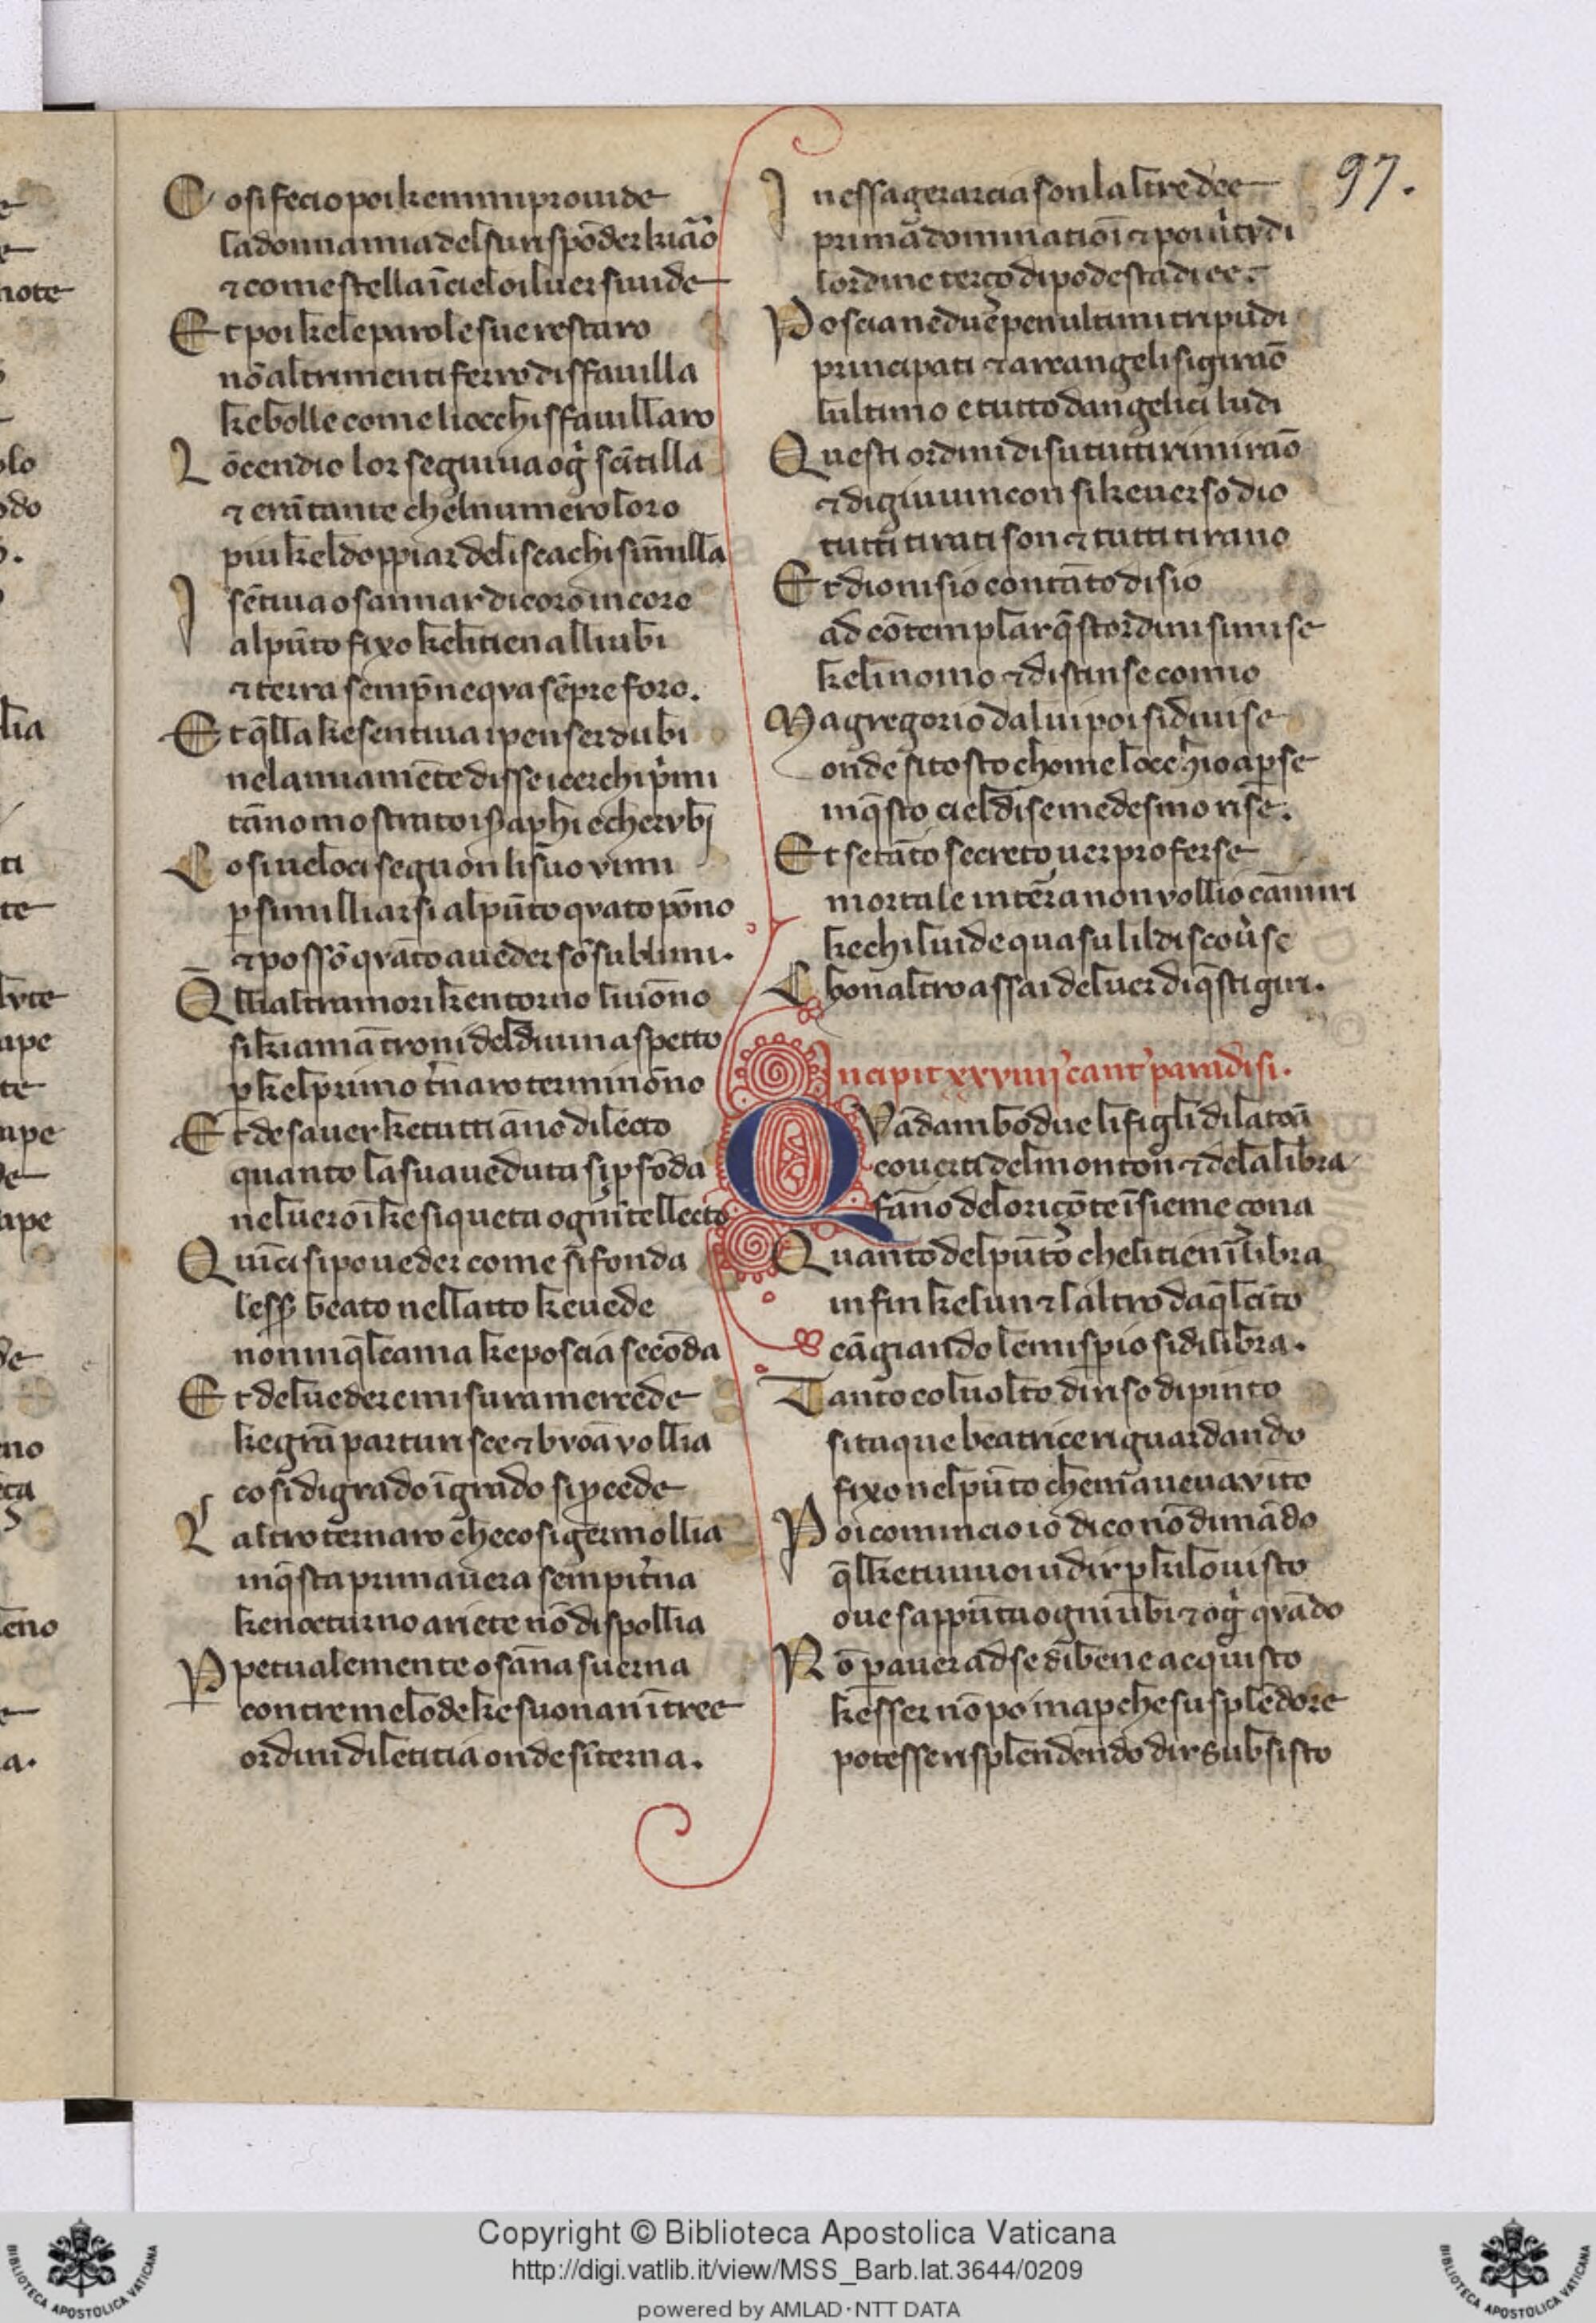 97.
Cosi fec io poi ke mmi provide
la donna mia del su rispōder kiāo
⁊ come stella ī cielo il ver si vide
Et poi ke le parole sue restaro
nō altrimenti ferro disfavilla
ke bolle come li occhi sfavillaro
Lōcendio lor seguiva og̍ scītilla
⁊ erātante chel numero loro
piu kel doppiar deli scachi sīmilla
I sētiva osannar di coro in coro
al pūto fixo keli tien alli ubi
⁊ terra semp̄ ne qva sēpre foro.
Et q̄lla ke sentiva i penser dubi
nela mia mēte disse i cerchi p̍mi
tānno mostrato i s̄aphi e cherubj
Cosi veloci seguon li suo vimi
p̱ simillliarsi al pūto qvāto pōno
⁊ possō qvāto a veder sō sublimi.
Q̄lli altri amori kentorno li vōno
si kiamā troni del divin aspetto
p̱ kel primo t̍naro terminōno
Et de saver ke tutti āno dilecto
quanto la sua veduta si p̱fōda
nel vero ī ke si queta ognītellecto
Quīci si po veder come si fonda
less̄ beato nell atto ke vede
non ī q̄l cama ke poscia secōda
Et del vedere misura mercede
ke grā parturisce ⁊ bvoā vollia
cosi di grado ī grado si p̱cede
Laltro ternaro che cosi germollia
in q̄sta primavera sempit̍na
ke nocturno ariete nō dispollia
P̱petualemente osāna sverna
con tre melode ke suonan ī tree
ordini di letitia onde sīterna.
In essa gerarcia son laltre dee
prima dominatioī ⁊ poi vi̍tvdi
lordine terço di podestadi ee.
Poscia ne due penultimi tripudi
principati ⁊ arcangeli si giraō
lultimo e tutto dangelici ludi
Questi ordini di su tutti rimiraō
⁊ di giu vincon si ke verso dio
tutti tirati son ⁊ tutti tirano
Et dionisio con tāto disio
ad cōtemplar q̄sti ordini si mise
ke li nomo ⁊ distinse com io
Ma gregorio da lui poi si divise
onde si tosto chome locchio ap̱se
in q̄sto ciel di se medesmo rise.
Et se tāto secreto ver proferse
mortale in tēra non vollio cāmiri
ke chil vide qua su lil discov̍se
Chon altro assai del ver di q̄sti giri.
Incipit xxviiij cant̍ paradisi.
Qvādambo due li figli di latoā
coverti del monton ⁊ dela libra
fāno del oriçōte īsieme çona
Quanto del pūto che li tien ī libra
infin ke lun ⁊ laltro da q̄l cīto
cāgiando lemisp̱io si dilibra.
Tanto col volto di riso dipinto
si taque beatrice riguardando
fixo nel pūto che māveva vīto
Poi comincio io dico nō dimādo
q̄l ke tu vuoi udir p̱ kil o visto
ove sappūta ogni ubi ⁊ og̍ qvādo
Nō p̱ aver ad se di bene acquisto
kesser nō po ma p̱che su splēdore
potesse risplendendo dir subsisto
Copyright © Biblioteca Apostolica Vaticana
http://digi.vatlib.it/view/MSS_Barb.lat.3644/0209
powered by AMLAD·NTT DATA
BIBLIOTECA APOSTOLICA VATICANA
BIBLIOTECA APOSTOLICA VATICANA